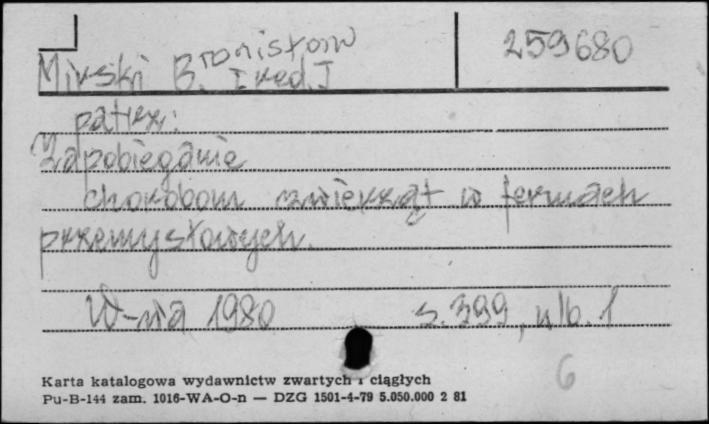 Mirski Bronisław [red.]
259680
patrz:
Zapobieganie
chorobom zwierząt w fermach
przemysłowych.
W-wa 1980 s. 399, nlb. 1
6
Karta katalogowa wydawnictw zwartych i ciągłych
Pu-B-144 zam. 1016-WA-O-n — DZG 1501-4-79 5.050.000 2 81